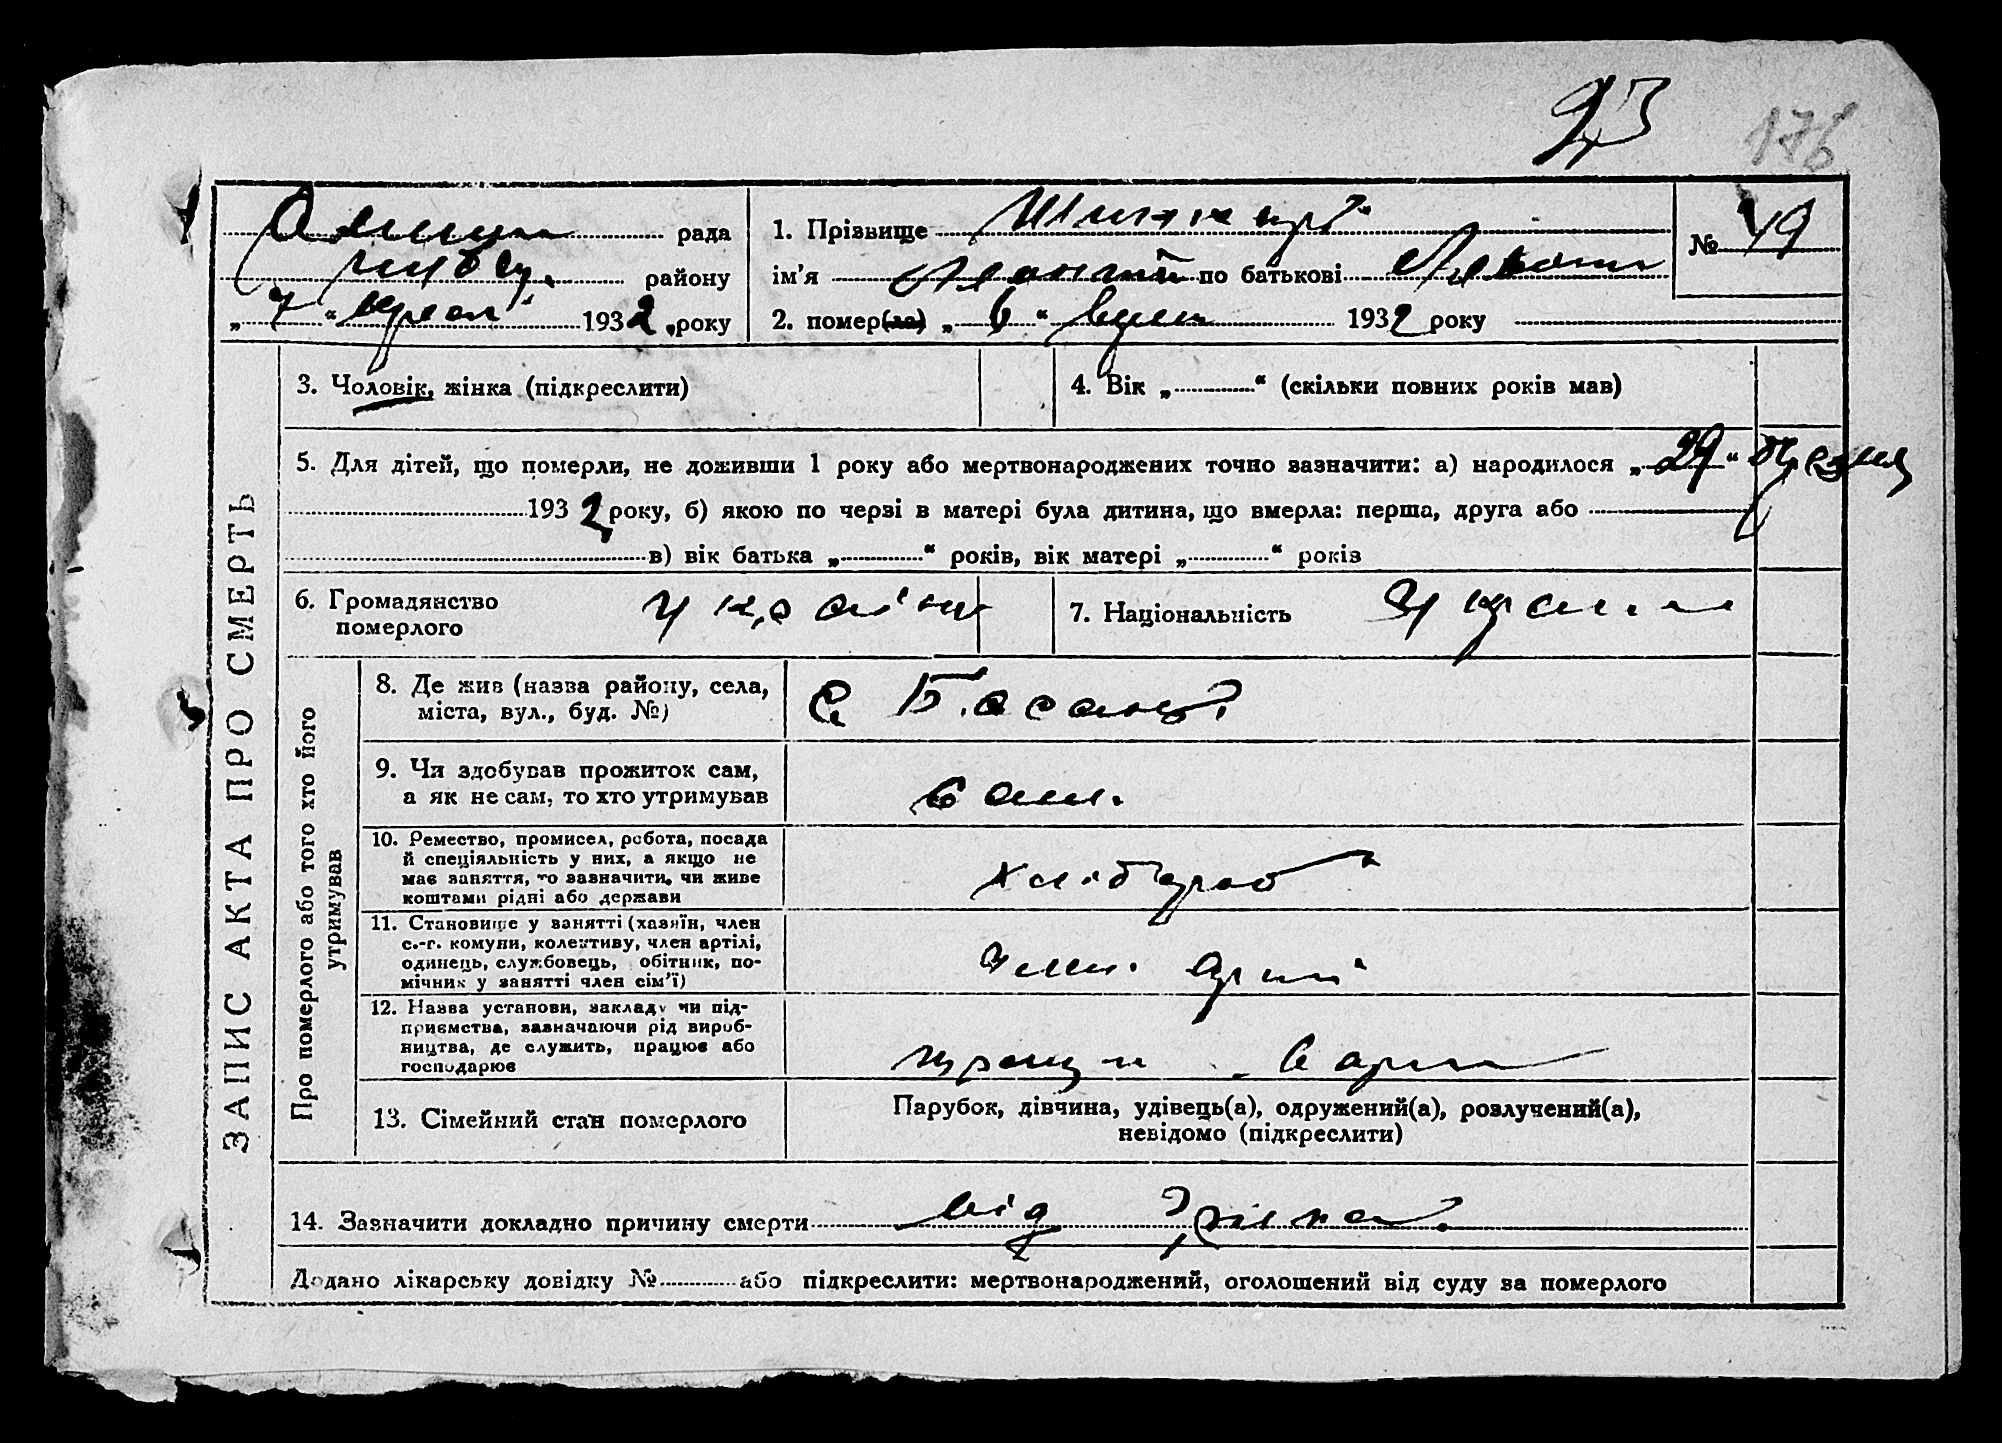 23
176
рада
району
„ 7 “ 1932 року
1. Прізвище
ім’я по батькові
№ 49
2. помер(ла) „ 6 “ 1932 року
ЗАПИС АКТА ПРО СМЕРТЬ
3. Чоловік, жінка (підкреслити)
4. Вік „ “ (скільки повних років мав)
5. Для дітей, що померли, не доживши 1 року або мертвонароджених точно зазначити: а) народилося „ 29 “ березня
1932 року, б) якою по черзі в матері була дитина, що вмерла: перша, друга або
в) вік батька „ “ років, вік матері „ “ років
6. Громадянство
померлого
україн
7. Національність
україн
Про померлого або того хто його
утримував
8. Де жив (назва району, села,
міста, вул., буд. №)
с
9. Чи здобував прожиток сам,
а як не сам, то хто утримував
сам.
10. Ремество, промисел, робота, посада
й спеціяльність у них, а якщо не
має заняття, то зазначити, чи живе
коштами рідні або держави
хлібороб
11. Становище у занятті (хазяїн, член
с.-г. комуни, колективу, член артілі,
одинець, службовець, обітник, по-
мічник у занятті член сім’ї)
член
12. Назва установи, закладу чи під-
приємства, зазначаючи рід вироб-
ництва, де служить, працює або
господарює
13. Сімейний стан померлого
Парубок, дівчина, удівець(а), одружений(а), розлучений(а),
невідомо (підкреслити)
14. Зазначити докладно причину смерти від
Додано лікарську довідку № або підкреслити: мертвонароджений, оголошений від суду за померлого